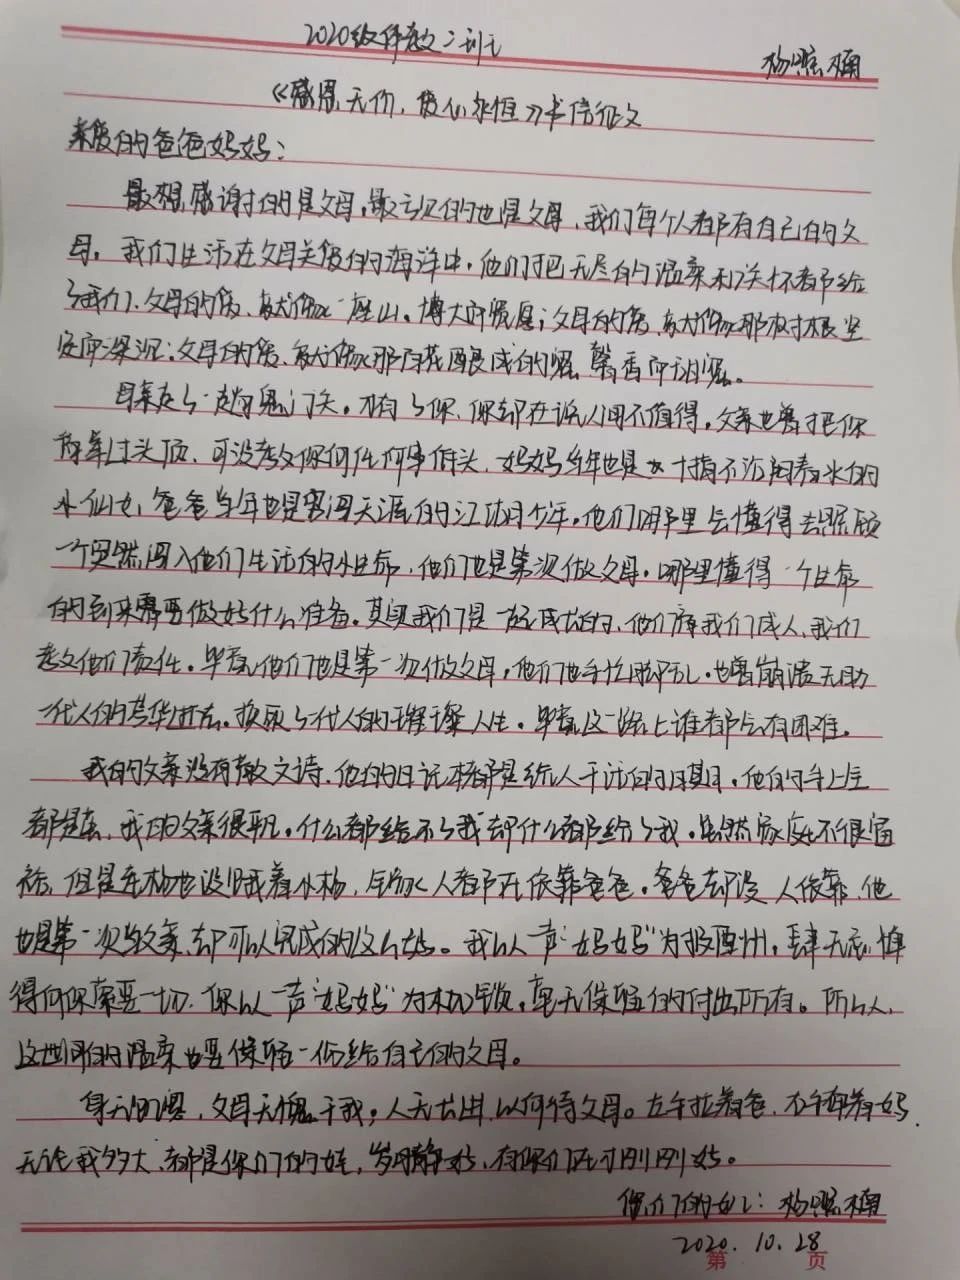 2020级体教二班
杨照楠
《感恩无价，爱心永恒》书信征文
亲爱的爸爸妈妈：
最想感谢的是父母，最忘记的也是父母，我们每个人都有自己的父
母。我们生活在父母关爱的海洋中，他们把无尽的温柔和关怀都给
了我们，父母的爱，就像一座山。博大而宽厚；父母的爱，就像那树根坚
定而深沉；父母的爱、就像那百花酿成的蜜，馨香而甜蜜。
母亲走了一趟鬼门关。才有了你、你却在说人间不值得。父亲也曾把你
高举过头顶，可没教父你何任何事低头，妈妈当年也是个十指不沾阳春水的
小仙女，爸爸当年也是客闯天涯的江湖少年。他们哪里会懂得去照顾
一个突然闯入他们生活的小生命，他们也是第一次做父母。哪里懂得一个生命
的到来需要做好什么准备。其实我们是一起成长的，他们育我们成人，我们
教父他们责任。毕竟他们也是第一次做父母，他们也手忙脚乱。也曾崩溃无助
一代人的芳华逝去。换取了一代人的璀璨人生。毕竟这一路上谁都会有困难。
我的父亲没有散文诗，他的日记本都是给人干活的日期，他的手上全
都是茧，我的父亲很平凡。什么都给不了我却什么都给了我。虽然家庭不很富
裕，但是连杨也没让我着小杨，全家人都在依靠爸爸。爸爸却没人依靠，他
也是第一次当父亲，却可以完成的这么好。我以一声“妈妈”为报酬，肆无忌惮
得向你索要一切，你以一声“妈妈”为枷锁，毫无保留的付出所有。所以，
这世间的温柔也要保留一份给自己的父母。
身无旧恩，父母无愧于我，人无长进，以何待父母。左手拉着爸，右手牵着妈
无论我多大，都是你们的娃，岁月静好，有你们在才刚刚好。
你们的女儿：杨照楠
2020.10.28
第 页